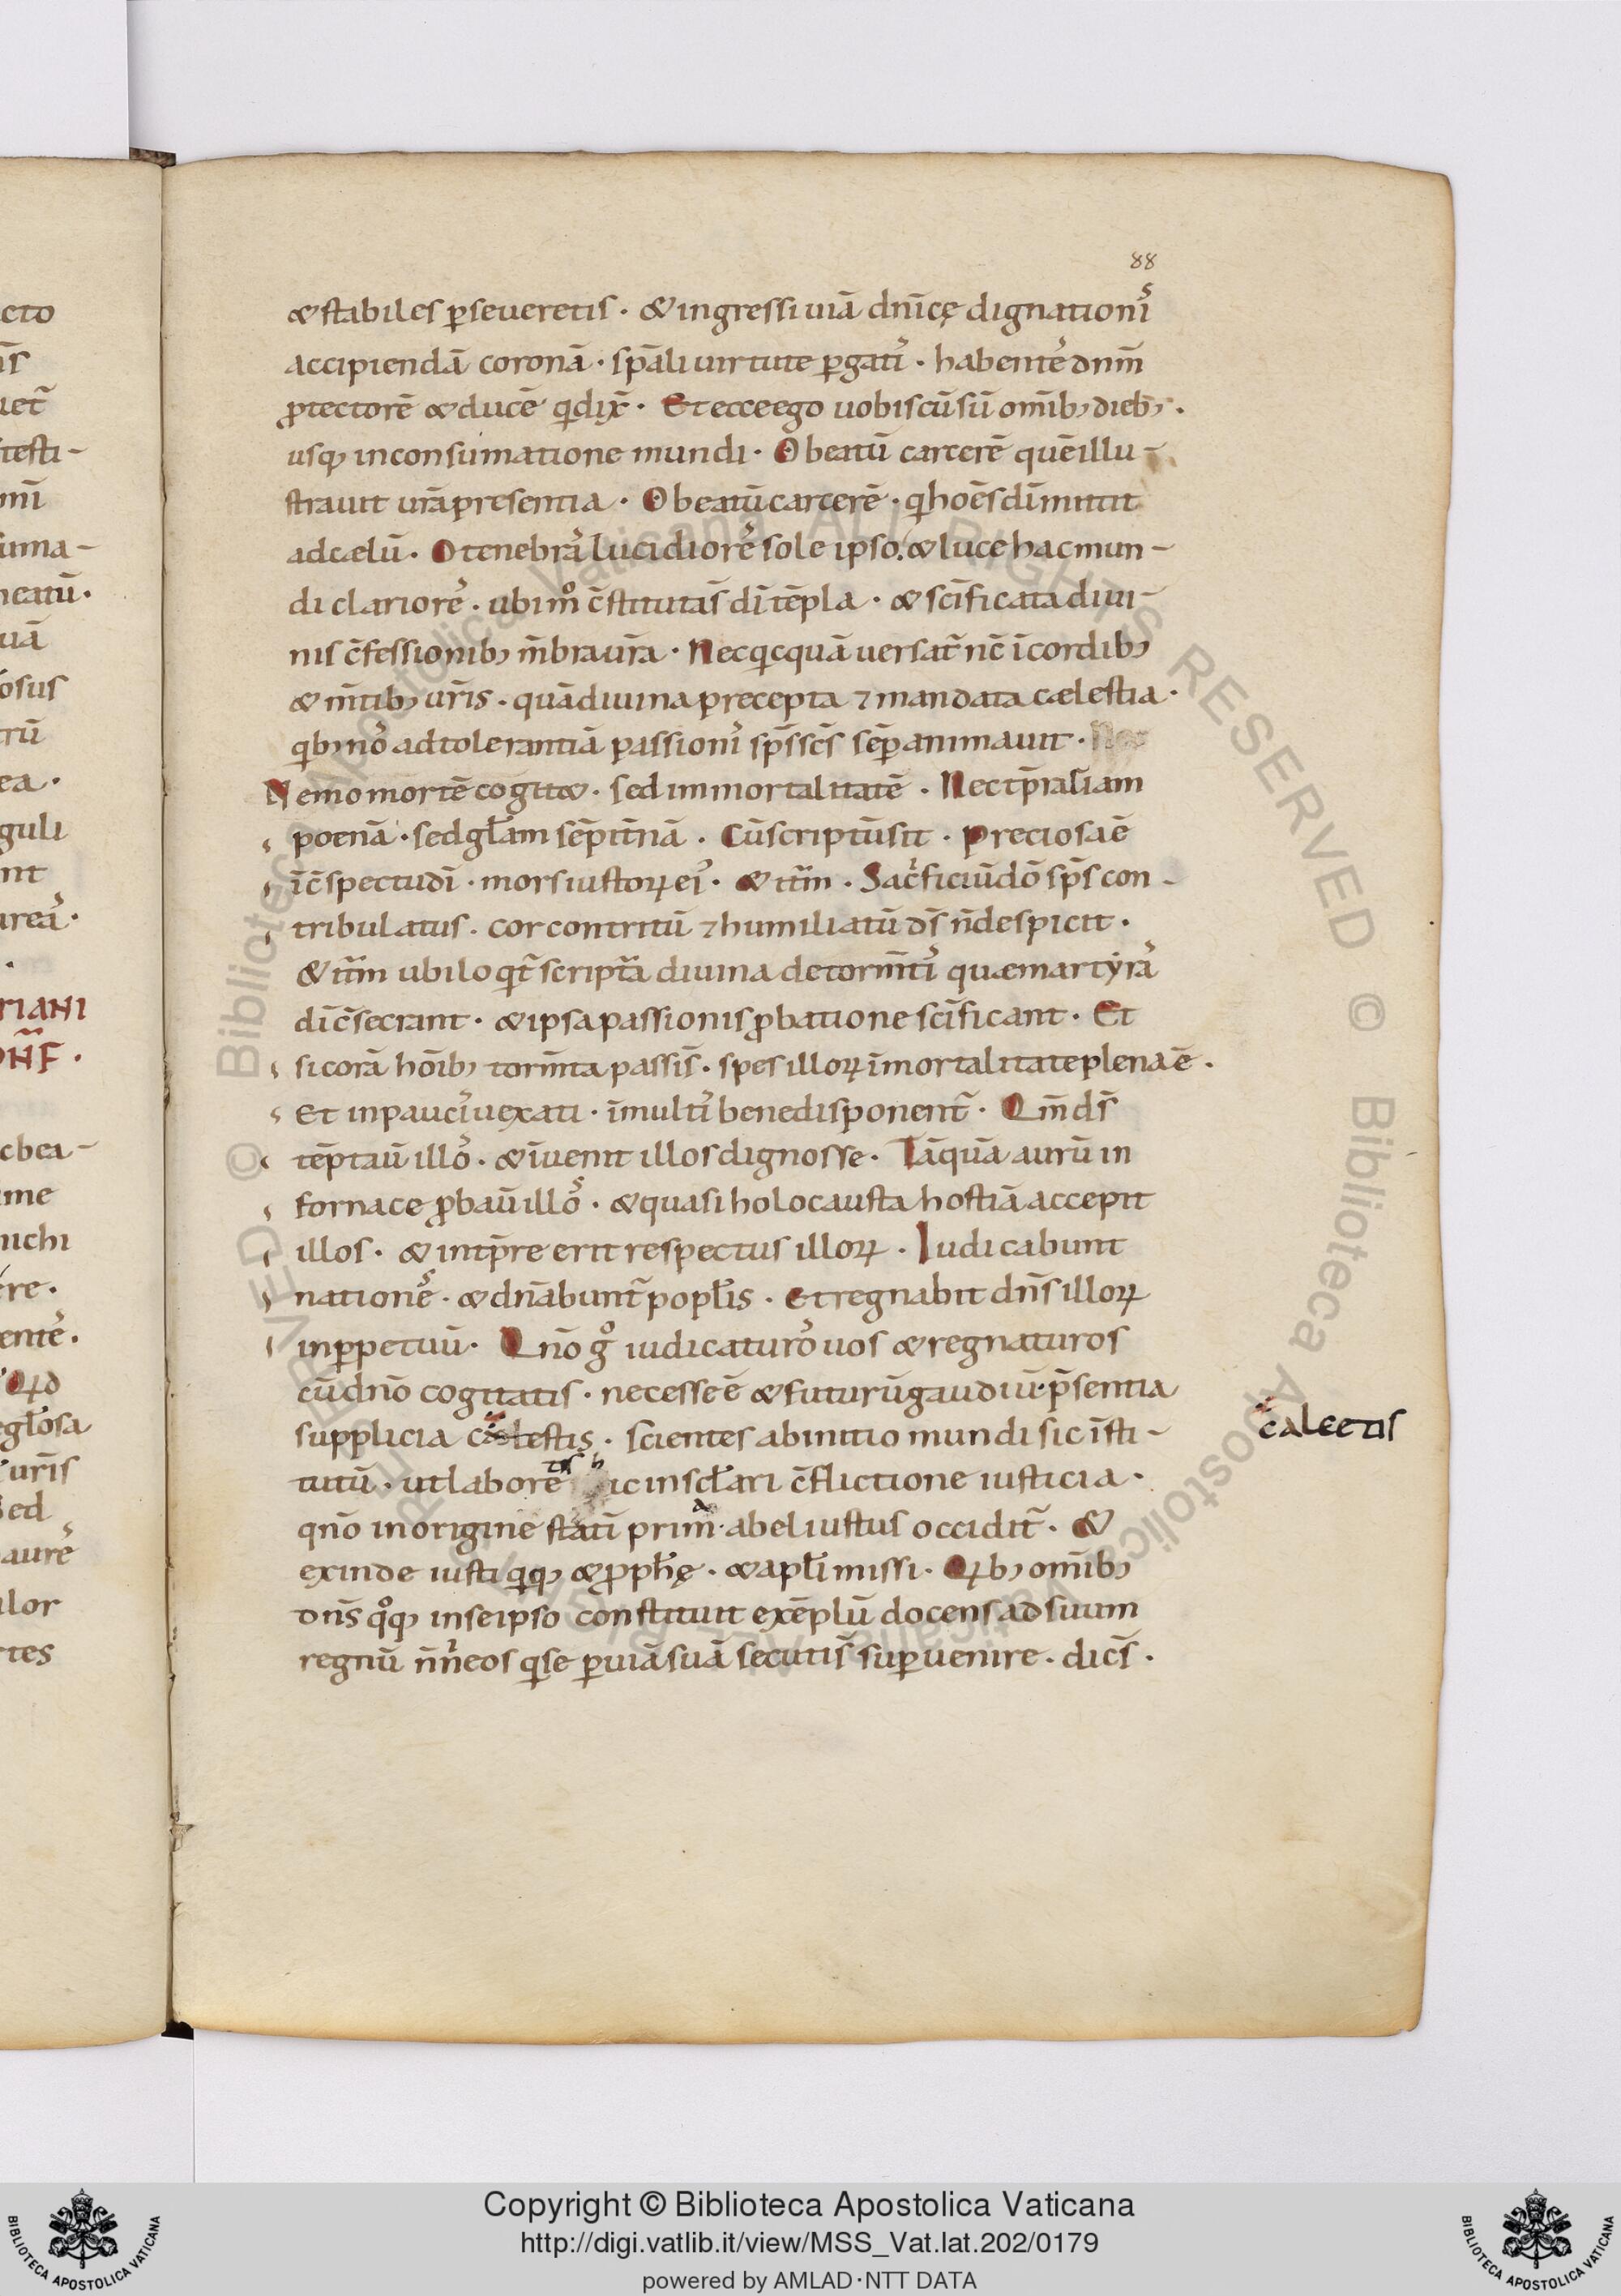 88
& stabiles ꝑseueretis · & ingressi uiã dñicę dignationis̃
accipiendã coronã · sp̃ali uirtute ꝑgatis̃ · habentes̃ dnm̃
ꝓtectorẽ & ducẽ qͥ dix̃ · Et ecce ego uobiscũ sũ om̃ib; dieb; ·
usq; in consũmatione mundi · O beatũ carcerẽ quẽ illu-
strauit ur̃a presentia · O beatũ carcerẽ · qͥ hoẽs dĩ mittit
ad cælũ · O tenebras̃ lucidiores̃ sole ipso · & luce hac mun-
di clariores̃ · ubi mͦ c̃stituta s̃ dĩ tẽpla · & sc̃ificata diui-
nis c̃fessionib; m̃bra ur̃a · Nec qͥcquã uersat̃ nc̃ ĩ cordib;
& m̃tib; ur̃is · quã diuina precepta ⁊ mandata cælestia ·
qͥb; uos̃ ad tolerantiã passionis̃ sp̃s sc̃s sẽꝑ animauit ·
Nemo mortẽ cogit& · sed immortalitatẽ · Nec tp̃raliam
poenã · sed gl̃am sẽpit̃nã · Cũ scriptũ sit · Preciosa ẽ
ĩ c̃spectu dĩ · mors iustoꝝ ei᾿ · & it̃m · Sacͥficiũ dõ sp̃s con-
tribulatus · cor contritũ ⁊ humiliatũ ds̃ ñ despicit ·
& it̃m ubi loqͥt̃ script̃a diuina de torm̃tis̃ quæ martyras̃
dĩ c̃secrant · & ipsa passionis ꝓbatione sc̃ificant · Et
si corã hõib; torm̃ta passi s̃ · spes illoꝝ ĩmortalitate plena ẽ ·
Et in paucis̃ uexati · ĩ multis̃ bene disponent̃ · Qm̃ ds̃
tẽptauĩ illos̃ · & ĩuenit illos dignos se · Tãquã aurũ in
fornace ꝓbauĩ illos̃ · & quasi holocausta hostiã accepit
illos · & in tp̃re erit respectus illoꝝ · Iudicabunt
nationes̃ · & dñabunt̃ popl̃is · Et regnabit dñs illoꝝ
in ꝑpetuũ · Qñо gͦ iudicaturos̃ uos & regnaturos
cũ dñо cogitatis · necesse ẽ & futurũ gaudiũ · p̃sentia
supplicia cælestis · scientes ab initio mundi sic ĩsti-
tutũ · ut labor& hic in scl̃ari c̃flictione iusticia ·
qñо in origine statĩ prima · abel iustus occidit̃ · &
exinde iusti qͥq; & ꝓph̃ę · & apl̃i missi · Qͥb; om̃ib;
dñs qͦq; in se ipso constituit exẽplũ docens ad suum
regnũ ñ nͥ eos qͥ se ꝑ uiã suã secuti s̃ suꝑuenire · dics̃ ·
calcetis
Copyright © Biblioteca Apostolica Vaticana
http://digi.vatlib.it/view/MSS_Vat.lat.202/0179
powered by AMLAD·NTT DATA